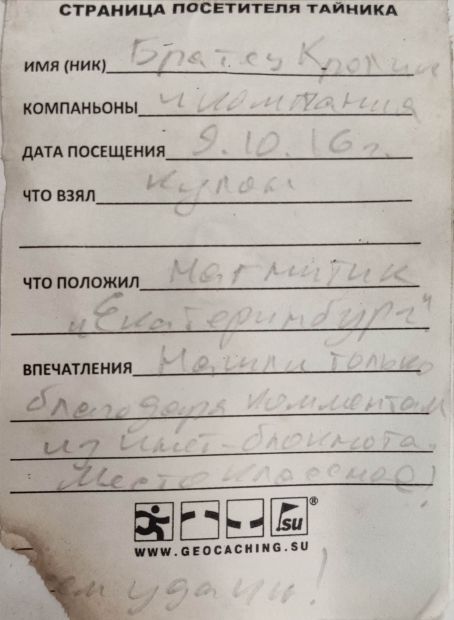 СТРАНИЦА ПОСЕТИТЕЛЯ ТАЙНИКА
ИМЯ (НИК) Братец Кролик
КОМПАНЬОНЫ и компания
ДАТА ПОСЕЩЕНИЯ 9.10.16 г.
ЧТО ВЗЯЛ кулон
ЧТО ПОЛОЖИЛ магнитик
"Екатеринбург"
ВПЕЧАТЛЕНИЯ Нашли только
благодаря комментам
из инет-блокнота.
Место классное!
.su®
WWW.GEOCACHING.SU
удачи!